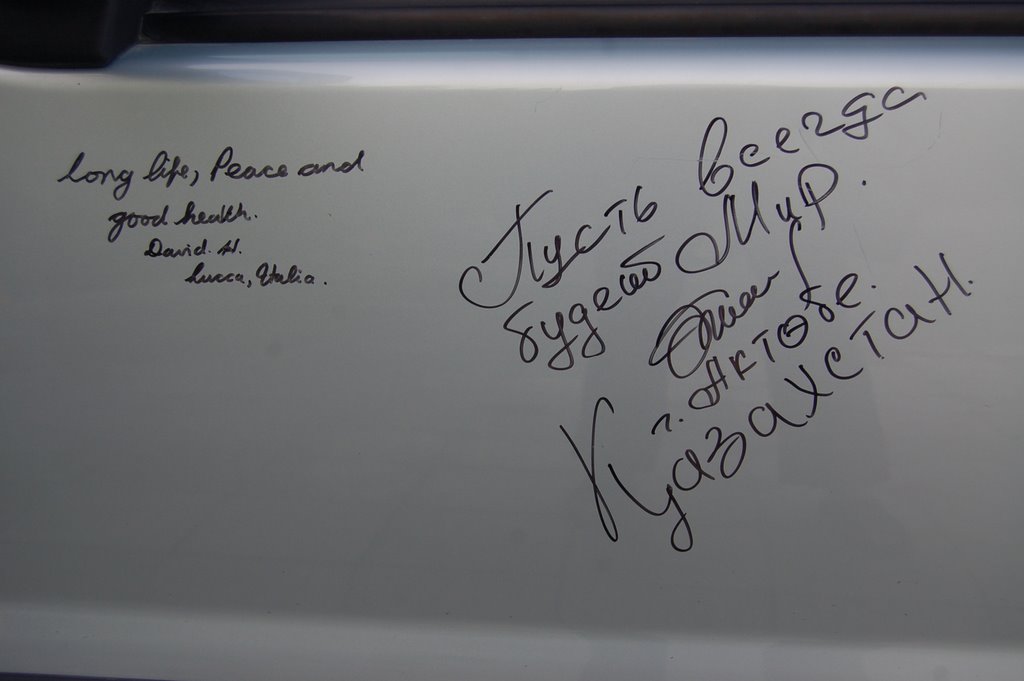 long life, Peace and
good health.
David. H.
Lucca, Italia.
Пусть всегда
будет Мир.
г. Актобе.
Казахстан.